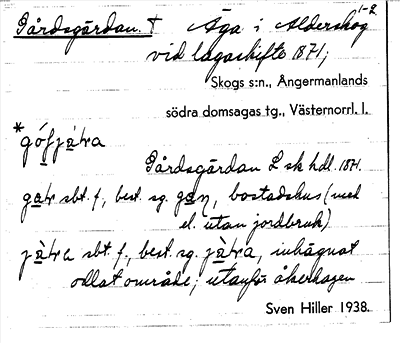 Gårdsgärdan. † Äga i Alderskog 1-2
vid lagaskifte 1871;
Skogs s:n., Ångermanlands
södra domsagas tg., Västernorrl. l.
*góḷjàra
Gårdsgärdan L sk hdl. 1871.
gaṛ sbt. f., best. sg. gaṇ, bostadshus (med
el. utan jordbruk)
jàra sbt. f., best. sg. jàra, inhägnat
odlat område; utanför åkerhagen
Sven Hiller 1938.